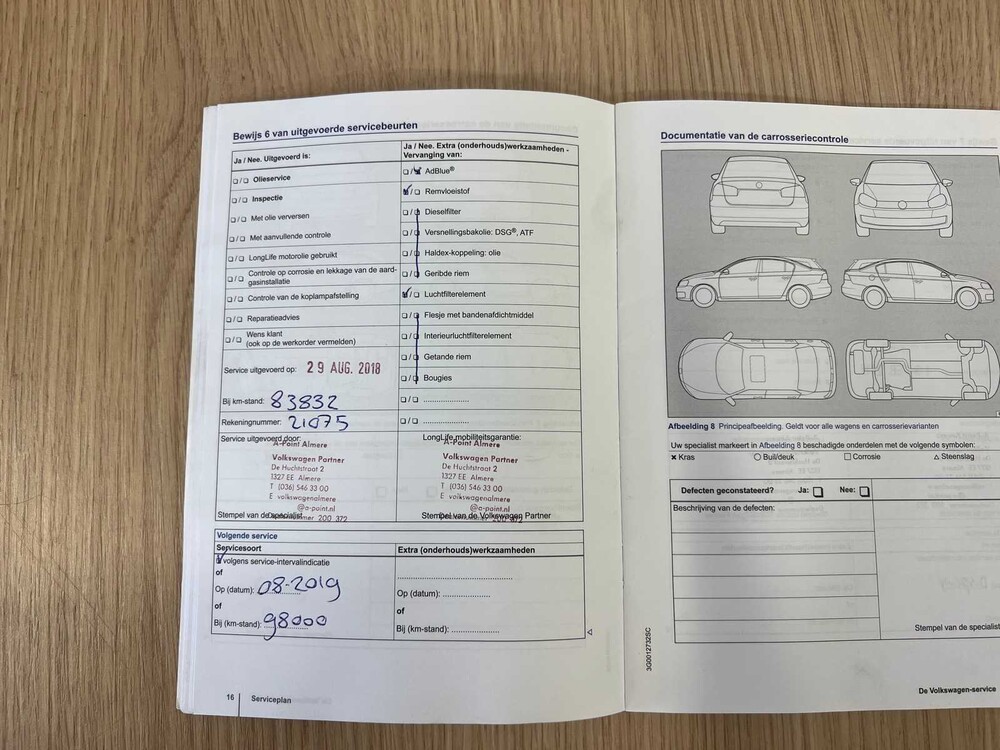 Bewijs 6 van uitgevoerde servicebeurten
Ja / Nee. Uitgevoerd is:
Olieservice
Inspectie
Met olie verversen
Met aanvullende controle
LongLife motorolie gebruikt
Controle op corrosie en lekkage van de aard-
gasinstallatie
Controle van de koplampafstelling
Reparatieadvies
Wens klant
(ook op de werkorder vermelden)
Service uitgevoerd op: 29 AUG. 2018
Bij km-stand: 83832
Rekeningnummer: 21075
Service uitgevoerd door:
A-Point Almere
Volkswagen Partner
De Huchtstraat 2
1327 EE Almere
T (036) 546 33 00
E volkswagenalmere
@a-point.nl
Stempel van de specialist
Ja / Nee. Extra (onderhouds)werkzaamheden -
Vervanging van:
AdBlue®
Remvloeistof
Dieselfilter
Versnellingsbakolie: DSG®, ATF
Haldex-koppeling: olie
Geribde riem
Luchtfilterelement
Flesje met bandenafdichtmiddel
Interieurluchtfilterelement
Getande riem
Bougies
LongLife mobiliteitsgarantie:
A-Point Almere
Volkswagen Partner
De Huchtstraat 2
1327 EE Almere
T (036) 546 33 00
E volkswagenalmere
@a-point.nl
Stempel van de Volkswagen Partner
Volgende service
Servicesoort
volgens service-intervalindicatie
of
Op (datum): 08-2019
of
Bij (km-stand): 98000
Extra (onderhouds)werkzaamheden
Op (datum):
of
Bij (km-stand):
16 Serviceplan
Documentatie van de carrosseriecontrole
Afbeelding 8 Principeafbeelding. Geldt voor alle wagens en carrosserievarianten
Uw specialist markeert in Afbeelding 8 beschadigde onderdelen met de volgende symbolen:
Kras Buil/deuk Corrosie Steenslag
Defecten geconstateerd? Ja: Nee:
Beschrijving van de defecten:
Stempel van de specialist
3G0012732SC
De Volkswagen-service